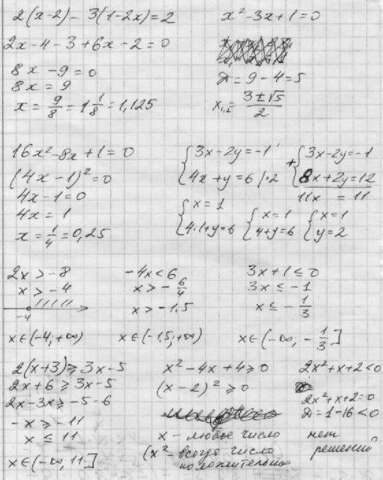 2(x-2) - 3(1-2x) = 2
2x - 4 - 3 + 6x - 2 = 0
8x - 9 = 0
8x = 9
x = 9/8 = 1 1/8 = 1,125
x² - 3x + 1 = 0
D = 9 - 4 = 5
x₁,₂ = (3 ± √5)/2
16x² - 8x + 1 = 0
(4x - 1)² = 0
4x - 1 = 0
4x = 1
x = 1/4 = 0,25
{ 3x - 2y = -1
{ 4x + y = 6 | ·2
+{ 3x - 2y = -1
{ 8x + 2y = 12
11x = 11
{ x = 1
{ 4·1 + y = 6
{ x = 1
{ 4 + y = 6
{ x = 1
{ y = 2
2x > -8
x > -4
-4
x ∈ (-4, +∞)
-4x < 6
x > -6/4
x > -1,5
x ∈ (-1,5, +∞)
3x + 1 ≤ 0
3x ≤ -1
x ≤ -1/3
x ∈ (-∞, -1/3]
2(x+3) ≥ 3x - 5
2x + 6 ≥ 3x - 5
2x - 3x ≥ -5 - 6
-x ≥ -11
x ≤ 11
x ∈ (-∞, 11]
x² - 4x + 4 ≥ 0
(x - 2)² ≥ 0
x - любое число
(x² - всегда число
положительно
2x² + x + 2 < 0
2x² + x + 2 = 0
D = 1 - 16 < 0
нет
решений